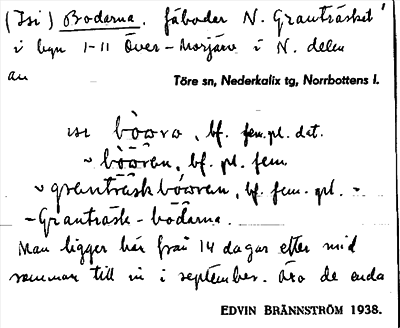 (Isi) Bodarna. fäboder N. Granträsket
i byn 1-11 Över-Morjärv i N. delen
av
Töre sn, Nederkalix tg, Norrbottens l.
isi bòwra, bf. fem. pl. dat.
~ bòwren, bf. pl. fem.
~ granträskbówren, bf. fem. pl. -
- Granträsk-bodarna.
Man ligger här från 14 dagar efter mid
sommar till in i september. Äro de enda
EDVIN BRÄNNSTRÖM 1938.